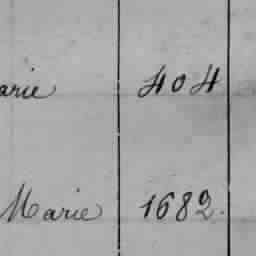 arie 404
Marie 1682.